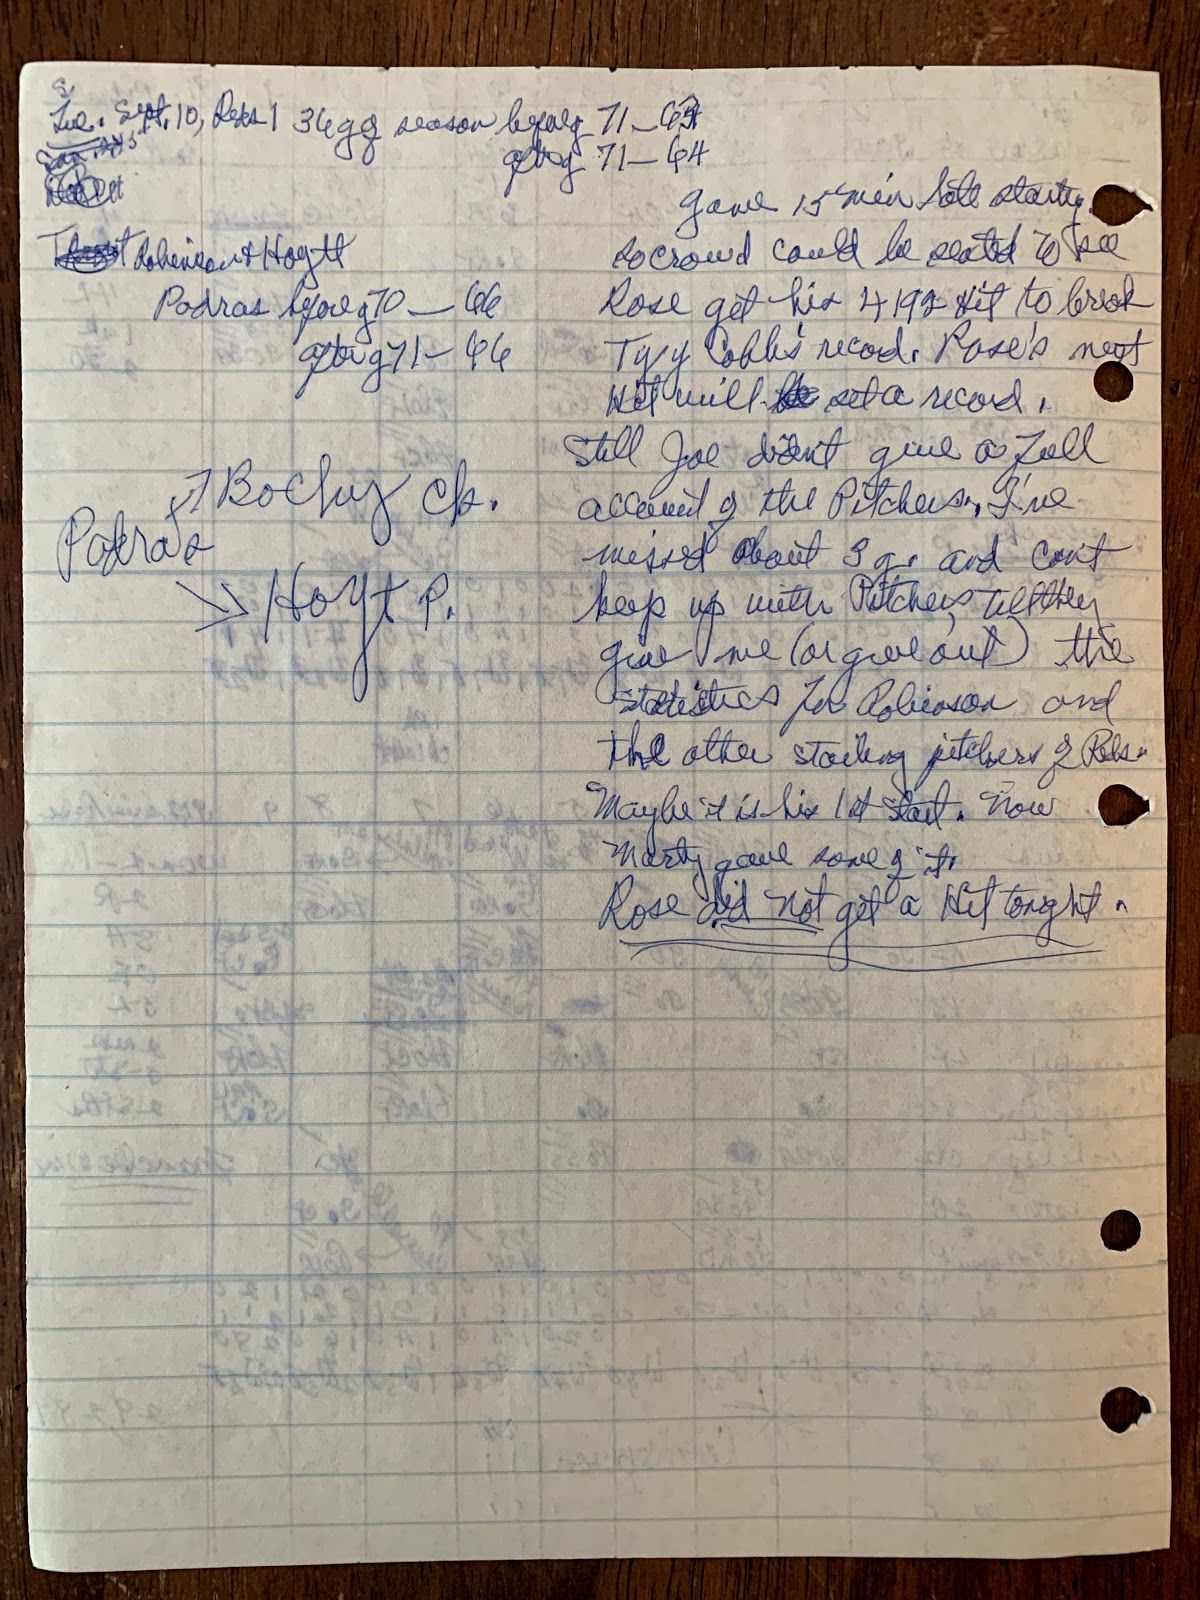 Tue. Sept. 10, Reds 136 g of season before g 71-63
after g 71-64
Robinson & Hoytt
Padras before g 70-66
after g 71-66
Padras
Bochy ch.
Hoyt P.
game 15 min late starting
so crowd could be seated to see
Rose get his 4192 Hit to break
Ty Cobb's record. Rose's next
Hit will set a record.
Still Joe didn't give a full
account of the Pitchers. I've
missed about 3 g. and can't
keep up with Pitchers till they
give me (or give out) the
statistics for Robinson and
the other starting pitchers of Reds.
Maybe it is his 1st start. Now
Marty gave some of it.
Rose did not get a Hit tonight.